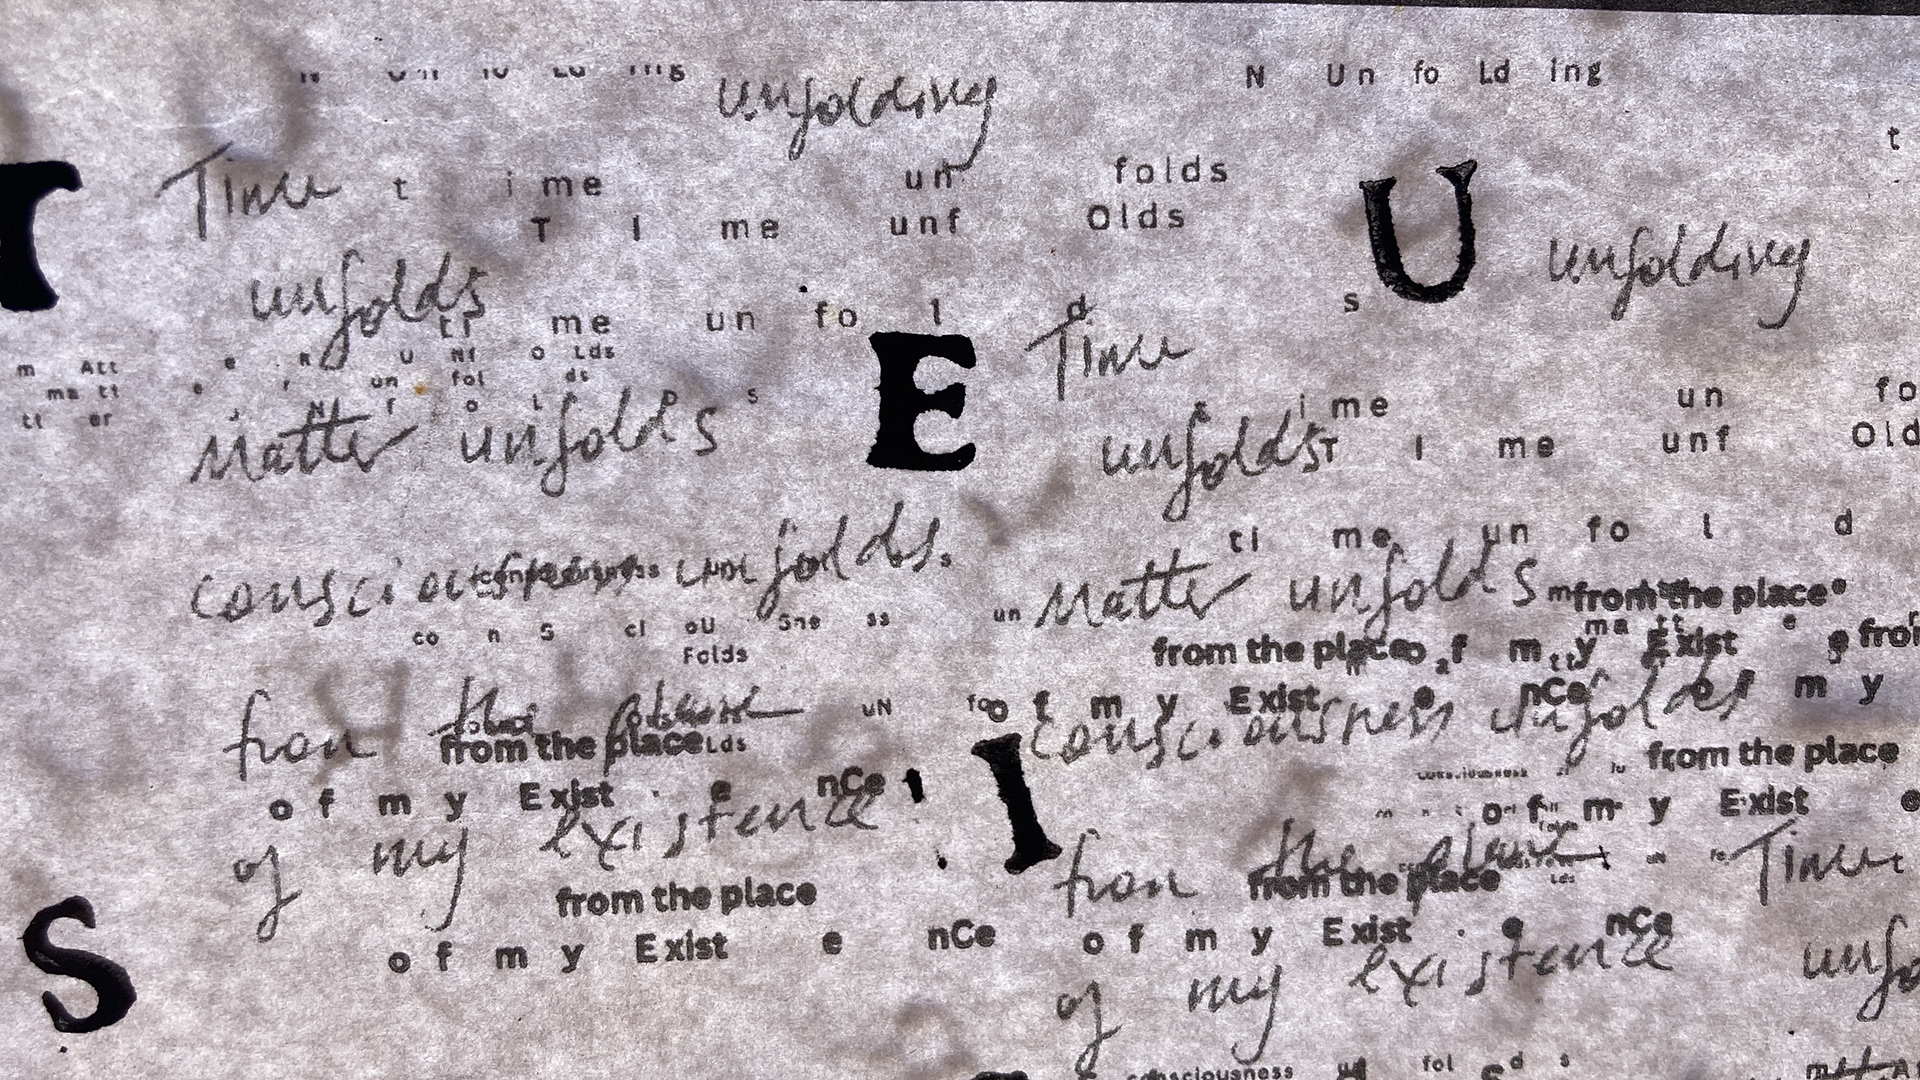 unfolding
N Un fo Ld ing
t
Time t i me un folds
T I me unf Olds
U
unfolding
unfolds
ti me un fo l d s
E
Time
m Att e R U Nf o Lds
ma tt e r un fol ds
tt er N f o L D s
Matter unfolds
i me un fo
unfolds T I me unf Old
consciousness unfolds.
ti me un fo l d
Matter unfolds from the place
co n S cI oU Sne ss un
Folds
from the place o f m y Exist
from the place
uN fo
o f m y Exist e nCe m y
from the place Lds
I
consciousness unfolds
from the place
o f m y Exist e nCe
o f m y Exist e
of my existence
from the place
Time
from the place
from the place
S
o f m y Exist e nCe
o f m y Exist e nCe
of my existence
unfo
consciousness fol d s